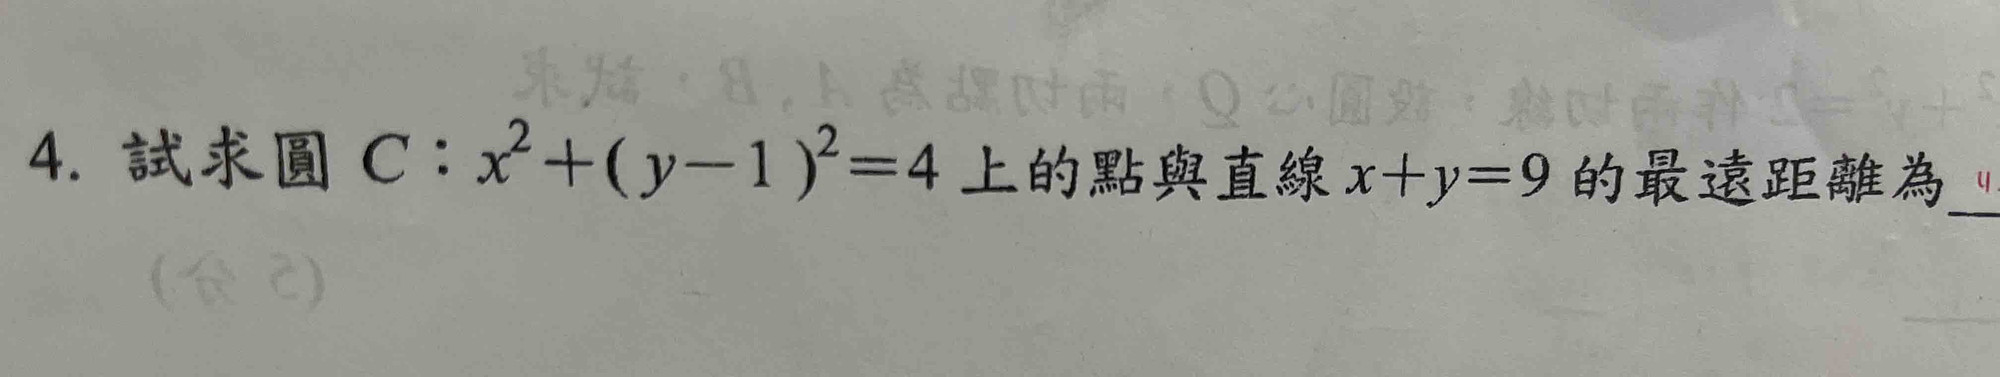 4. 試求圓 C：x²＋( y－1 )²＝4 上的點與直線 x＋y＝9 的最遠距離為